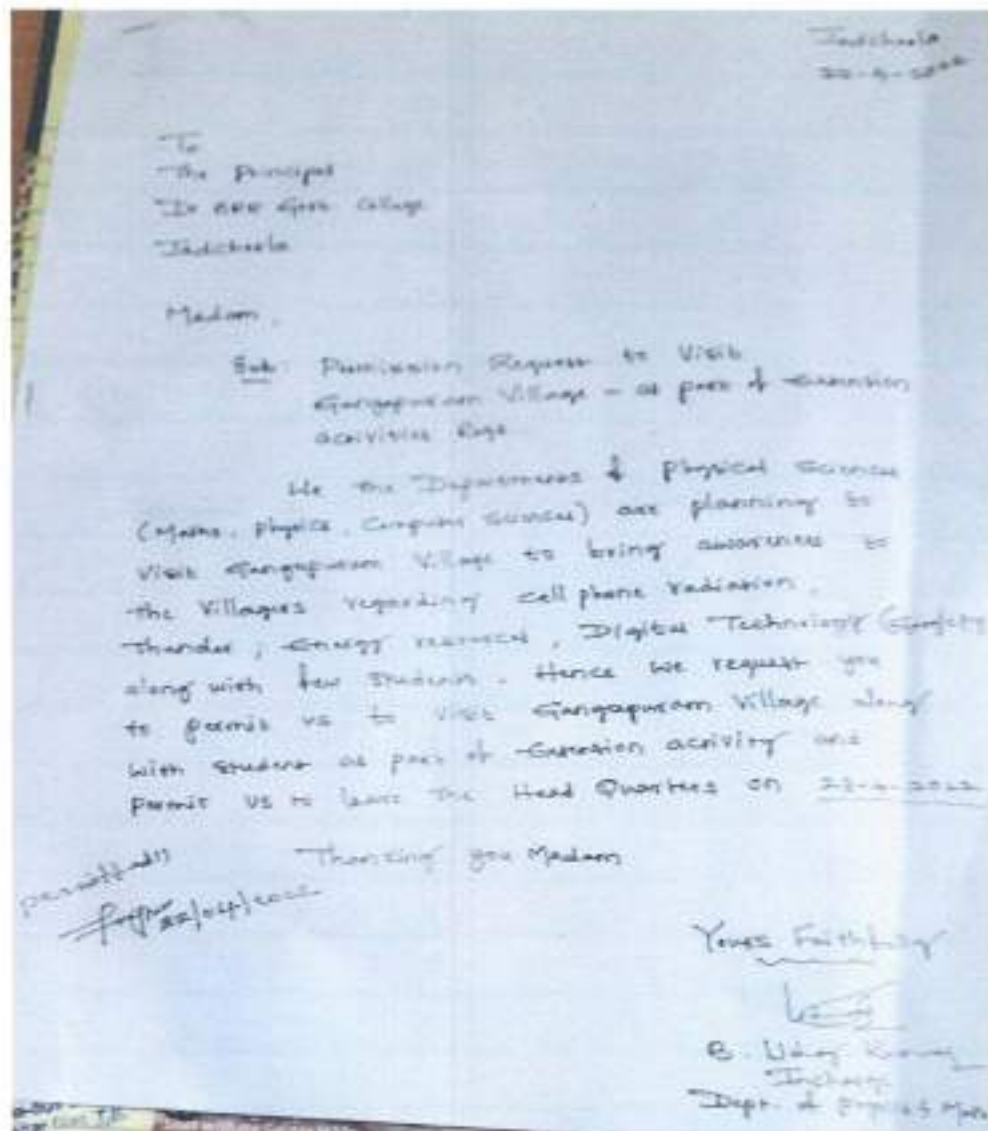 Jadcherla
22-4-2022
To
The Principal
Dr BRR Govt College
Jadcherla
Madam,
Sub: Permission Request to Visit
Gangapuram Village - as part of Extension
activities Regd
We the Departments of physical sciences
(Maths, physics, Computer sciences) are planning to
visit Gangapuram Village to bring awareness to
the Villagers regarding cell phone radiation,
Thunder, Energy resources, Digital Technology
along with few students. Hence we request you
to permit us to visit Gangapuram Village along
with student as part of Extension activity and
permit us to leave the Head Quarters on 23-4-2022
Thanking you Madam
permitted
22/04/2022
Yours Faithfully
B. Uday Kumar
Incharge
Dept. of physics &